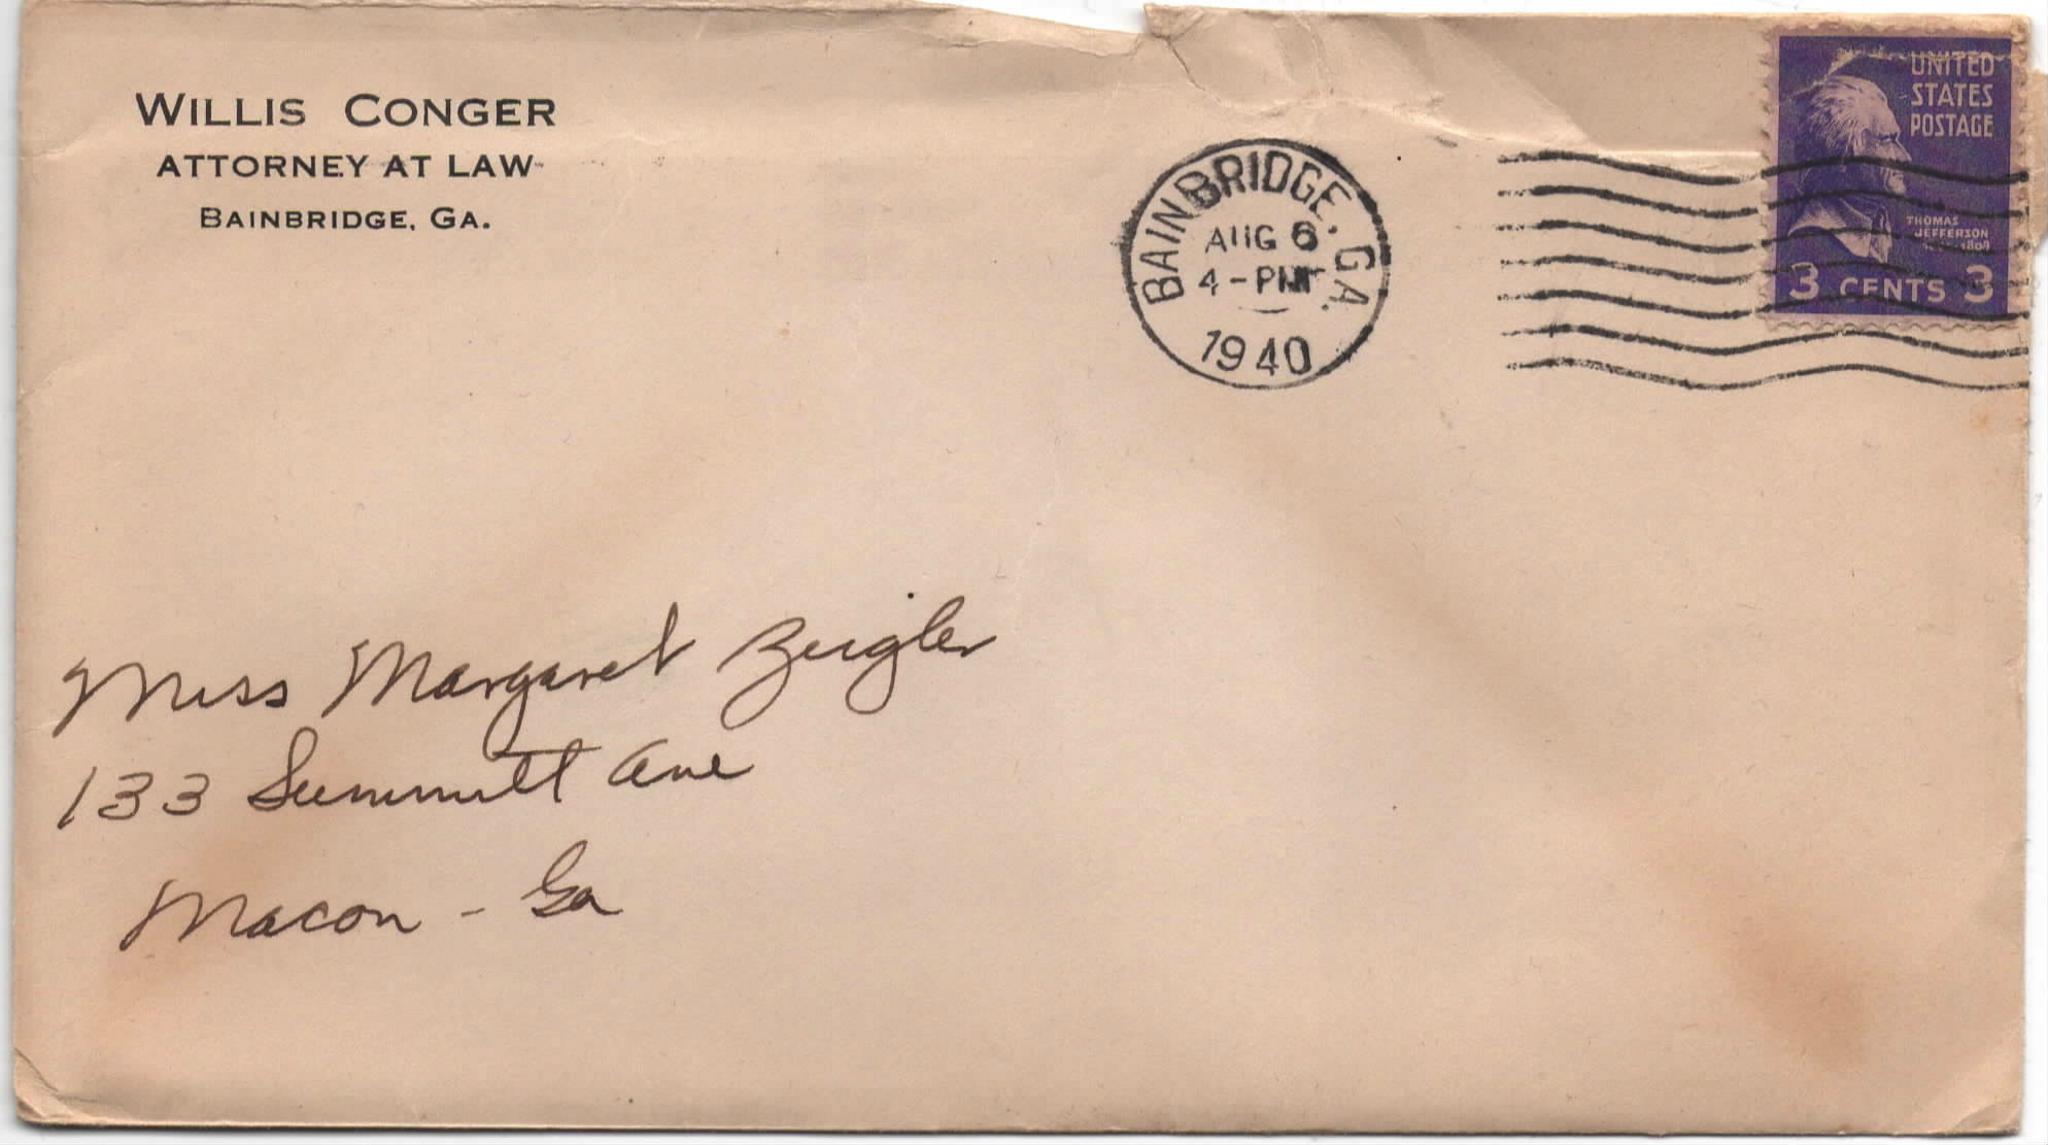 WILLIS CONGER
ATTORNEY AT LAW
BAINBRIDGE, GA.
BAINBRIDGE, GA.
AUG 6
4-PM
1940
UNITED
STATES
POSTAGE
THOMAS
JEFFERSON
1809
3 CENTS 3
Miss Margaret Zeigler
133 Summitt Ave
Macon - Ga